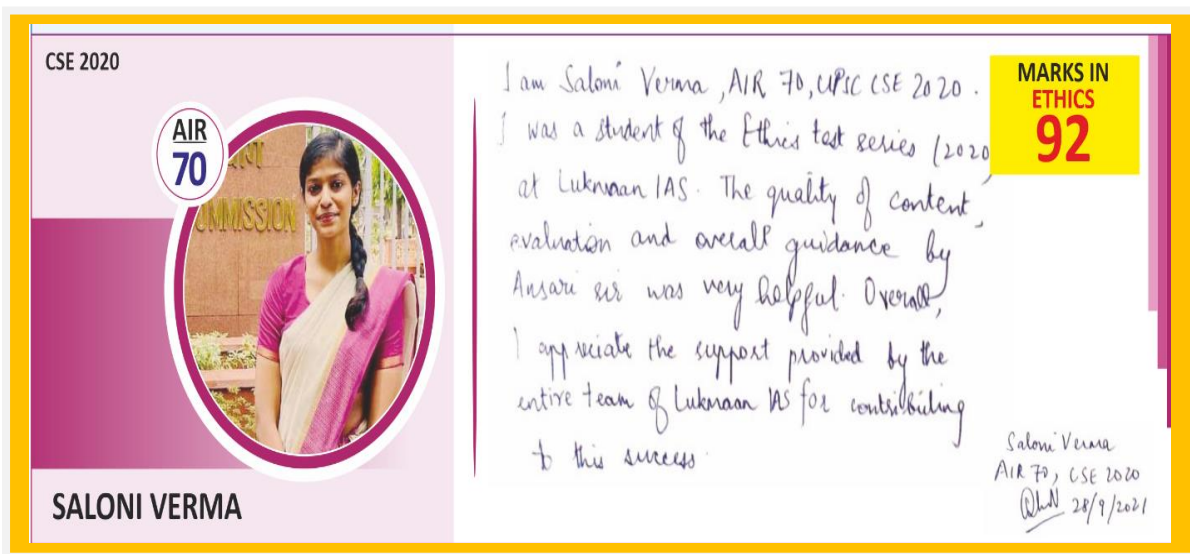 CSE 2020
AIR
70
COMMISSION
SALONI VERMA
I am Saloni Verma, AIR 70, UPSC CSE 2020.
I was a student of the Ethics test series (2020
at Luknaan IAS. The quality of content,
evaluation and overall guidance by
Ansari sir was very helpful. Overall,
I appreciate the support provided by the
entire team of Lukmaan IAS for contributing
to this success.
MARKS IN
ETHICS
92
Saloni Verma
AIR 70, CSE 2020
28/9/2021